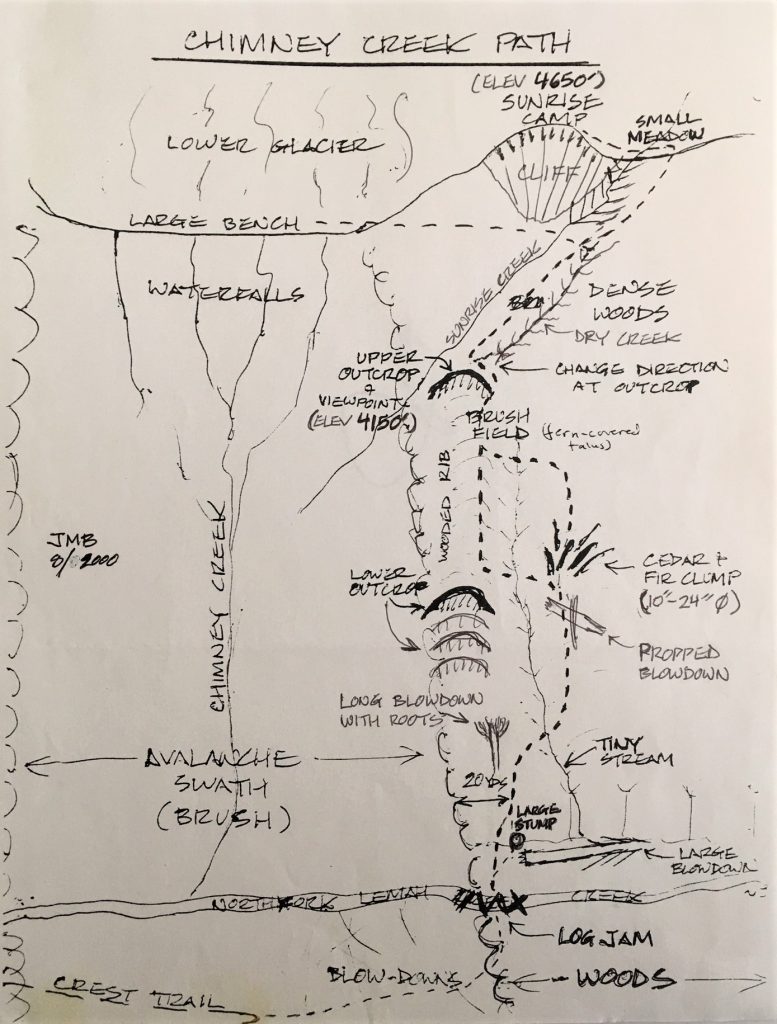 CHIMNEY CREEK PATH
(ELEV 4650')
SUNRISE
CAMP
SMALL
MEADOW
LOWER GLACIER
CLIFF
LARGE BENCH
WATERFALLS
SUNRISE CREEK
DENSE
WOODS
DRY CREEK
UPPER
OUTCROP
&
VIEWPOINT
(ELEV 4150')
CHANGE DIRECTION
AT OUTCROP
BRUSH
FIELD
(fern-covered
talus)
WOODED RIB
JMB
8/2000
CHIMNEY CREEK
LOWER
OUTCROP
CEDAR &
FIR CLUMP
(10"-24" Ø)
PROPPED
BLOWDOWN
LONG BLOWDOWN
WITH ROOTS
AVALANCHE
SWATH
(BRUSH)
TINY
STREAM
20 YDS
LARGE
STUMP
LARGE
BLOWDOWN
NORTH FORK LEMAH CREEK
LOG JAM
BLOW-DOWNS
WOODS
CREST TRAIL